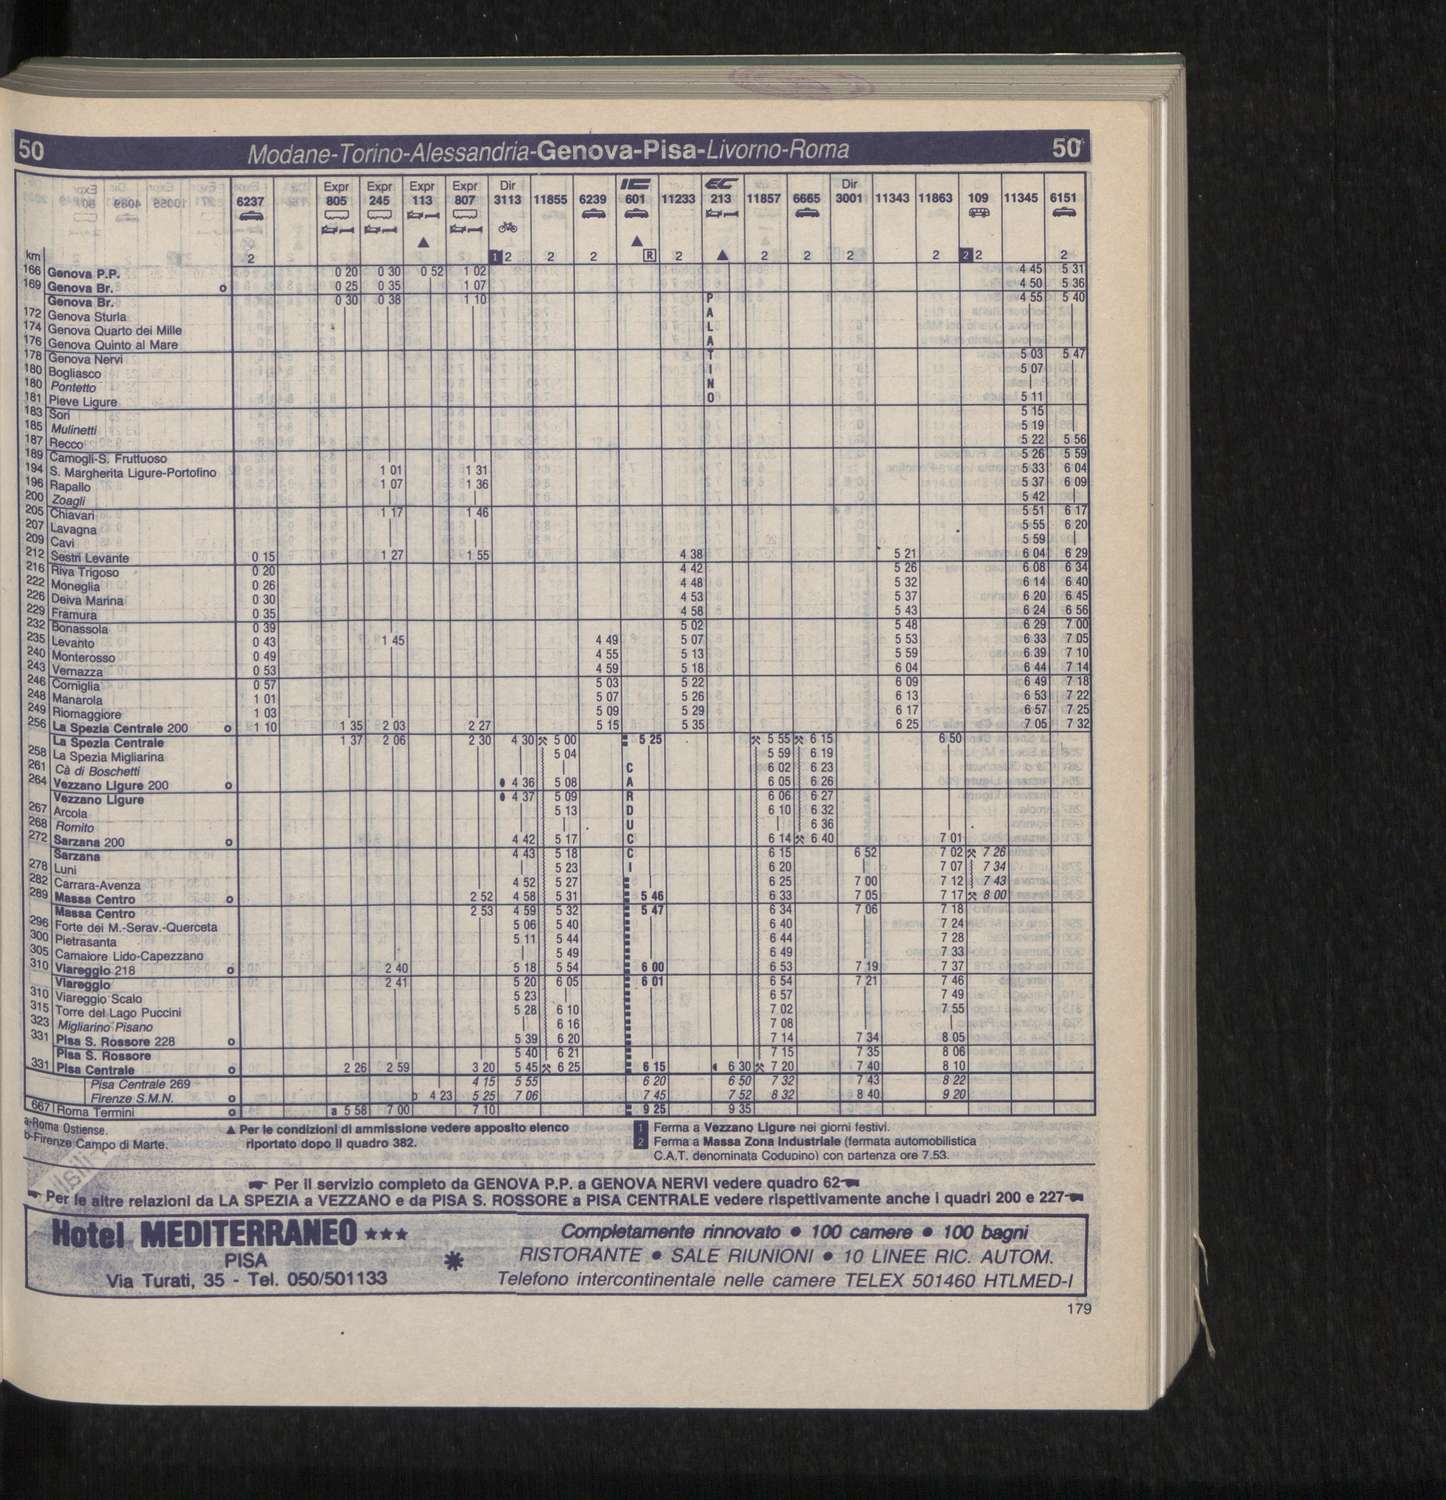 50 Modane-Torino-Alessandria-Genova-Pisa-Livorno-Roma 50
Expr Expr Expr Expr Dir IC EC Dir
6237 805 245 113 807 3113 11855 6239 601 11233 213 11857 6665 3001 11343 11863 109 11345 6151
km 2 1 2 2 2 R 2 2 2 2 2 2 2 2
166 Genova P.P. 0 20 0 30 0 52 1 02 4 45 5 31
169 Genova Br. o 0 25 0 35 1 07 4 50 5 36
Genova Br. 0 30 0 38 1 10 4 55 5 40
172 Genova Sturla
174 Genova Quarto dei Mille
176 Genova Quinto al Mare
178 Genova Nervi 5 03 5 47
180 Bogliasco 5 07
180 Pontetto
181 Pieve Ligure 5 11
PALATINO
183 Sori 5 15
185 Mulinetti 5 19
187 Recco 5 22 5 56
189 Camogli-S. Fruttuoso 5 26 5 59
194 S. Margherita Ligure-Portofino 1 01 1 31 5 33 6 04
196 Rapallo 1 07 1 36 5 37 6 09
200 Zoagli 5 42
205 Chiavari 1 17 1 46 5 51 6 17
207 Lavagna 5 55 6 20
209 Cavi 5 59
212 Sestri Levante 0 15 1 27 1 55 4 38 5 21 6 04 6 29
216 Riva Trigoso 0 20 4 42 5 26 6 08 6 34
222 Moneglia 0 26 4 48 5 32 6 14 6 40
226 Deiva Marina 0 30 4 53 5 37 6 20 6 45
229 Framura 0 35 4 58 5 43 6 24 6 56
232 Bonassola 0 39 5 02 5 48 6 29 7 00
235 Levanto 0 43 1 45 4 49 5 07 5 53 6 33 7 05
240 Monterosso 0 49 4 55 5 13 5 59 6 39 7 10
243 Vernazza 0 53 4 59 5 18 6 04 6 44 7 14
246 Corniglia 0 57 5 03 5 22 6 09 6 49 7 18
248 Manarola 1 01 5 07 5 26 6 13 6 53 7 22
249 Riomaggiore 1 03 5 09 5 29 6 17 6 57 7 25
256 La Spezia Centrale 200 o 1 10 1 35 2 03 2 27 5 15 5 35 6 25 7 05 7 32
La Spezia Centrale 1 37 2 06 2 30 4 30 5 00 5 25 5 55 6 15 6 50
258 La Spezia Migliarina 5 04 5 59 6 19
261 Cà di Boschetti 6 02 6 23
264 Vezzano Ligure 200 o 4 36 5 08 6 05 6 26
Vezzano Ligure 4 37 5 09 6 06 6 27
267 Arcola 5 13 6 10 6 32
268 Romito 6 36
272 Sarzana 200 o 4 42 5 17 6 14 6 40 7 01
CARDUCCI
Sarzana 4 43 5 18 6 15 6 52 7 02 7 26
278 Luni 5 23 6 20 7 07 7 34
282 Carrara-Avenza 4 52 5 27 6 25 7 00 7 12 7 43
289 Massa Centro o 2 52 4 58 5 31 5 46 6 33 7 05 7 17 8 00
Massa Centro 2 53 4 59 5 32 5 47 6 34 7 06 7 18
296 Forte dei M.-Serav.-Querceta 5 06 5 40 6 40 7 24
300 Pietrasanta 5 11 5 44 6 44 7 28
305 Camaiore Lido-Capezzano 5 49 6 49 7 33
310 Viareggio 218 o 2 40 5 18 5 54 6 00 6 53 7 19 7 37
Viareggio 2 41 5 20 6 05 6 01 6 54 7 21 7 46
310 Viareggio Scalo 5 23 6 57 7 49
315 Torre del Lago Puccini 5 28 6 10 7 02 7 55
323 Migliarino Pisano 6 16 7 08
331 Pisa S. Rossore 228 o 5 39 6 20 7 14 7 34 8 05
Pisa S. Rossore 5 40 6 21 7 15 7 35 8 06
331 Pisa Centrale o 2 26 2 59 3 20 5 45 6 25 6 15 6 30 7 20 7 40 8 10
Pisa Centrale 269 4 15 5 55 6 20 6 50 7 32 7 43 8 22
Firenze S.M.N. o b 4 23 5 25 7 06 7 45 7 52 8 32 8 40 9 20
667 Roma Termini o a 5 58 7 00 7 10 9 25 9 35
a-Roma Ostiense.
b-Firenze Campo di Marte.
▲ Per le condizioni di ammissione vedere apposito elenco
riportato dopo il quadro 382.
1 Ferma a Vezzano Ligure nei giorni festivi.
2 Ferma a Massa Zona Industriale (fermata automobilistica
C.A.T. denominata Codupino) con partenza ore 7.53.
Per il servizio completo da GENOVA P.P. a GENOVA NERVI vedere quadro 62
Per le altre relazioni da LA SPEZIA a VEZZANO e da PISA S. ROSSORE a PISA CENTRALE vedere rispettivamente anche i quadri 200 e 227
Hotel MEDITERRANEO ★★★
PISA
Via Turati, 35 - Tel. 050/501133
Completamente rinnovato ● 100 camere ● 100 bagni
RISTORANTE ● SALE RIUNIONI ● 10 LINEE RIC. AUTOM.
Telefono intercontinentale nelle camere TELEX 501460 HTLMED-I
179